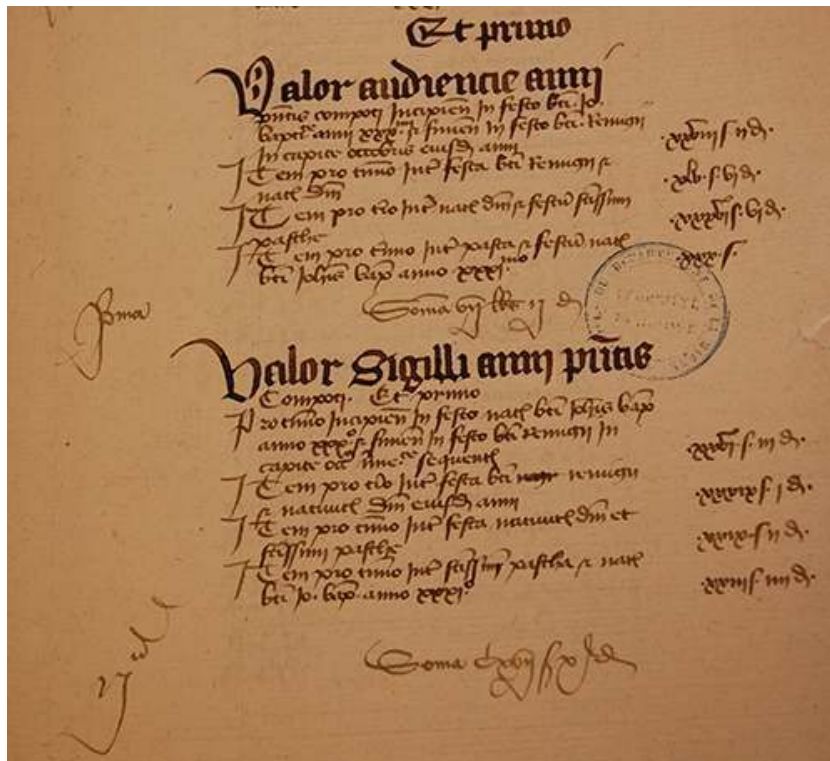 Et primo
Valor audiencie anni
pntis compoti Incipien In festo bti Jo.
bapte anni xxx & finien In festo bti Remigii
In capite octobris eiusd anni xxviii s ii d
Item pro tmino Int festa bti Remigii &
nath dm xlv s vi d
Item pro tio Int nath dm & festu stissim
pasche s vi d
Item pro tmino Int pasca & festu nath
bti Johis bap anno xxxi mo xxx s
Soma vii ii d
Pma
Valor Sigilli anni pntis
Compoti. Et primo
Pro tmino Incipien In festo nath bti Johis bap
anno xxx o & finien In festo bti Remigii In
capite sequenth xxvi s iii d
Item pro tio Int festa bti Remigii
& nativith Dm eiusd anni xxxix s i d
Item pro tmino Int festa nativith dm et
stissimi pasche xxix s ii d
Item pro tmino Int stissim pascha & nath
bti Jo. bap. anno xxxi o xxiii s iiii d
Soma cxvii s x d